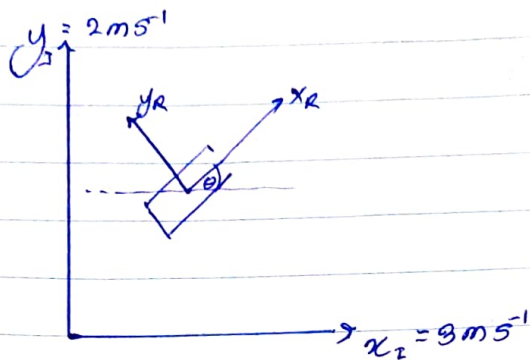 y_I = 2 m s⁻¹
y_R
x_R
θ
x_I = 3 m s⁻¹